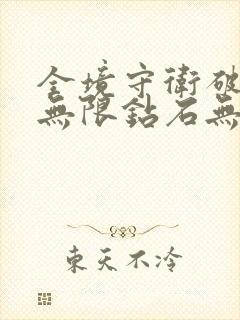 全境守衛破
無限鉆石無
東天不冷